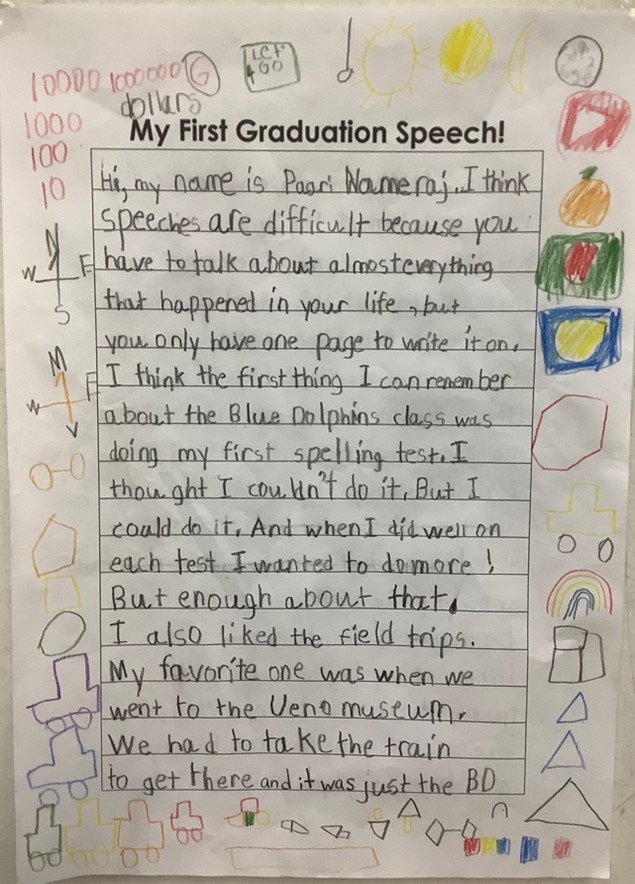 10000 1000000 G
LET GO
dollars
1000
100
10
My First Graduation Speech!
Hi, my name is Paari Nameraj. I think
speeches are difficult because you
have to talk about almost everything
that happened in your life, but
you only have one page to write it on.
I think the first thing I can remember
about the Blue Dolphins class was
doing my first spelling test. I
thought I couldn't do it, But I
could do it, And when I did well on
each test I wanted to do more!
But enough about that.
I also liked the field trips.
My favorite one was when we
went to the Ueno museum.
We had to take the train
to get there and it was just the BD
N
W E
S
W E